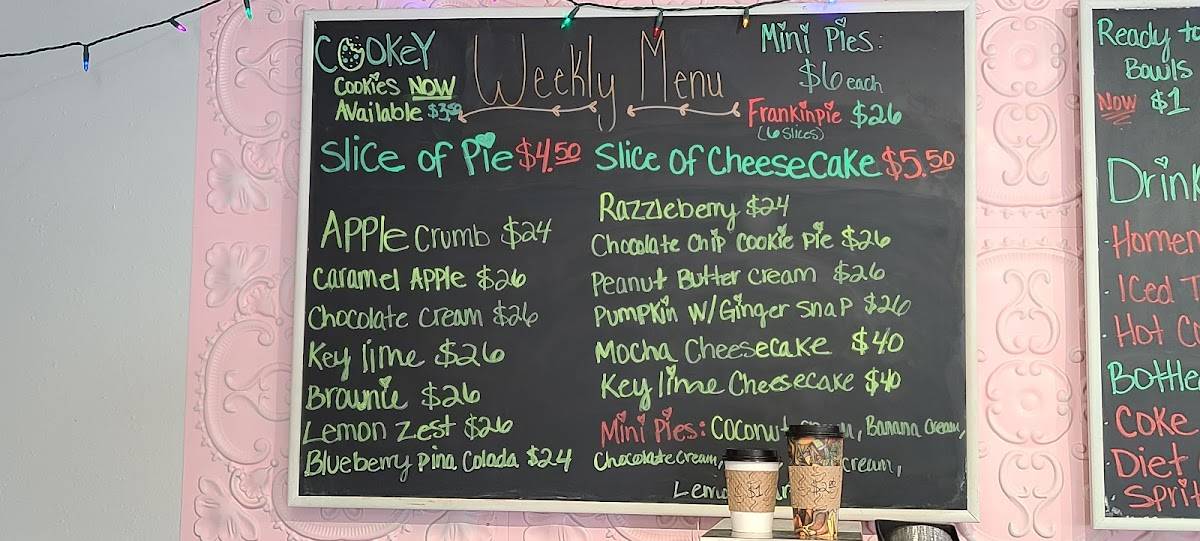 COOKEY
Cookies NOW
Available $3.50
Weekly Menu
Mini Pies:
$6 each
Frankinpie $26
(6 slices)
Slice of Pie $4.50
Slice of Cheesecake $5.50
Apple Crumb $24
Caramel Apple $26
Chocolate Cream $26
Key lime $26
Brownie $26
Lemon Zest $26
Blueberry Pina Colada $24
Razzleberry $24
Chocolate Chip Cookie Pie $26
Peanut Butter Cream $26
Pumpkin w/Ginger Snap $26
Mocha Cheesecake $40
Key lime Cheesecake $40
Mini Pies: Coconut, Banana Cream,
Chocolate Cream, cream,
$1
Ready to
Bowls
Now $1
Drink
· Homen
· Iced T
· Hot C
Bottle
· Coke
· Diet
· Sprit